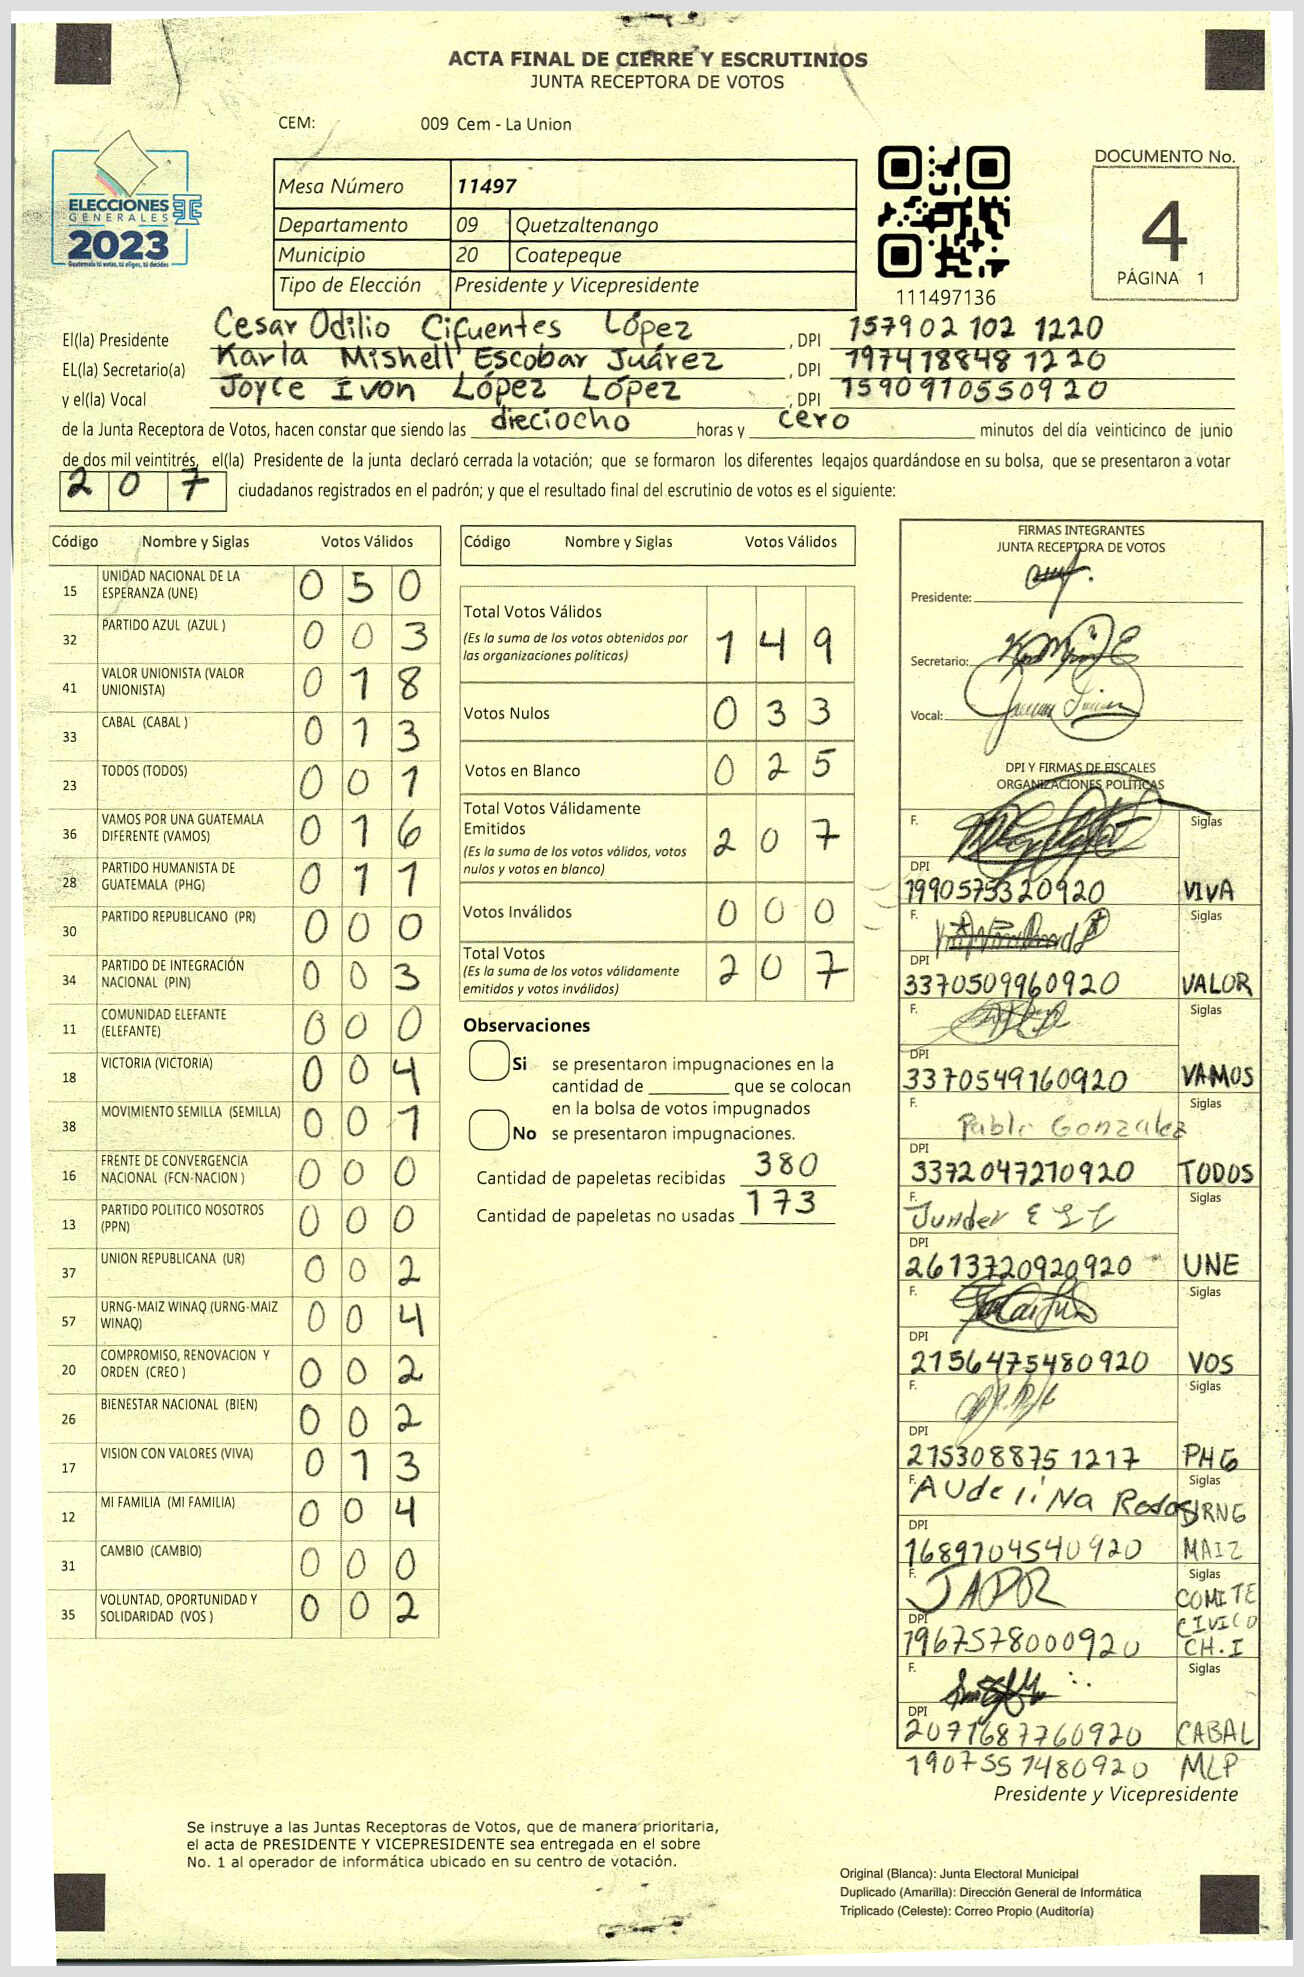 ACTA FINAL DE CIERRE Y ESCRUTINIOS
JUNTA RECEPTORA DE VOTOS
CEM: 009 Cem - La Union
ELECCIONES
GENERALES
2023
Guatemala tú votas, tú eliges, tú decides
Mesa Número 11497
Departamento 09 Quetzaltenango
Municipio 20 Coatepeque
Tipo de Elección Presidente y Vicepresidente
111497136
DOCUMENTO No.
4
PÁGINA 1
El(la) Presidente Cesar Odilio Cifuentes López , DPI 157902 102 1220
EL(la) Secretario(a) Karla Mishell Escobar Juárez , DPI 197418848 1220
y el(la) Vocal Joyce Ivon López López , DPI 1590910550920
de la Junta Receptora de Votos, hacen constar que siendo las dieciocho horas y cero minutos del día veinticinco de junio
de dos mil veintitrés, el(la) Presidente de la junta declaró cerrada la votación; que se formaron los diferentes legajos guardándose en su bolsa, que se presentaron a votar
207 ciudadanos registrados en el padrón; y que el resultado final del escrutinio de votos es el siguiente:
Código Nombre y Siglas Votos Válidos
15 UNIDAD NACIONAL DE LA ESPERANZA (UNE) 0 5 0
32 PARTIDO AZUL (AZUL ) 0 0 3
41 VALOR UNIONISTA (VALOR UNIONISTA) 0 1 8
33 CABAL (CABAL ) 0 1 3
23 TODOS (TODOS) 0 0 1
36 VAMOS POR UNA GUATEMALA DIFERENTE (VAMOS) 0 1 6
28 PARTIDO HUMANISTA DE GUATEMALA (PHG) 0 1 1
30 PARTIDO REPUBLICANO (PR) 0 0 0
34 PARTIDO DE INTEGRACIÓN NACIONAL (PIN) 0 0 3
11 COMUNIDAD ELEFANTE (ELEFANTE) 0 0 0
18 VICTORIA (VICTORIA) 0 0 4
38 MOVIMIENTO SEMILLA (SEMILLA) 0 0 1
16 FRENTE DE CONVERGENCIA NACIONAL (FCN-NACION ) 0 0 0
13 PARTIDO POLITICO NOSOTROS (PPN) 0 0 0
37 UNION REPUBLICANA (UR) 0 0 2
57 URNG-MAIZ WINAQ (URNG-MAIZ WINAQ) 0 0 4
20 COMPROMISO, RENOVACION Y ORDEN (CREO ) 0 0 2
26 BIENESTAR NACIONAL (BIEN) 0 0 2
17 VISION CON VALORES (VIVA) 0 1 3
12 MI FAMILIA (MI FAMILIA) 0 0 4
31 CAMBIO (CAMBIO) 0 0 0
35 VOLUNTAD, OPORTUNIDAD Y SOLIDARIDAD (VOS ) 0 0 2
Código Nombre y Siglas Votos Válidos
Total Votos Válidos
(Es la suma de los votos obtenidos por
las organizaciones políticas) 1 4 9
Votos Nulos 0 3 3
Votos en Blanco 0 2 5
Total Votos Válidamente
Emitidos
(Es la suma de los votos válidos, votos
nulos y votos en blanco) 2 0 7
Votos Inválidos 0 0 0
Total Votos
(Es la suma de los votos válidamente
emitidos y votos inválidos) 2 0 7
Observaciones
Si se presentaron impugnaciones en la
cantidad de ________ que se colocan
en la bolsa de votos impugnados
No se presentaron impugnaciones.
Cantidad de papeletas recibidas 380
Cantidad de papeletas no usadas 173
FIRMAS INTEGRANTES
JUNTA RECEPTORA DE VOTOS
Presidente:
Secretario:
Vocal:
DPI Y FIRMAS DE FISCALES
ORGANIZACIONES POLÍTICAS
F. Siglas
DPI
1990575320920 VIVA
F. Siglas
DPI
3370509960920 VALOR
F. Siglas
DPI
3370549160920 VAMOS
F. Pablo Gonzalez Siglas
DPI
3372047210920 TODOS
F. Junder Siglas
DPI
2613720920920 UNE
F. Siglas
DPI
2156475480920 VOS
F. Siglas
DPI
215308875 1217 PHG
F. AUdeliNa Rodas Siglas
URNG
DPI
1689704540920 MAIZ
F. JAPR Siglas
COMITE
CIVICO
DPI
1967578000920 CH.I
F. Siglas
DPI
2071687760920 CABAL
1907557480920 MLP
Presidente y Vicepresidente
Se instruye a las Juntas Receptoras de Votos, que de manera prioritaria,
el acta de PRESIDENTE Y VICEPRESIDENTE sea entregada en el sobre
No. 1 al operador de informática ubicado en su centro de votación.
Original (Blanca): Junta Electoral Municipal
Duplicado (Amarilla): Dirección General de Informática
Triplicado (Celeste): Correo Propio (Auditoría)